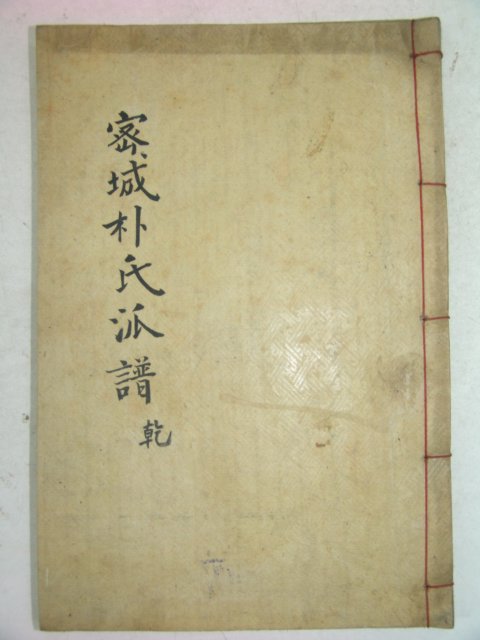 密城朴氏派譜
乾